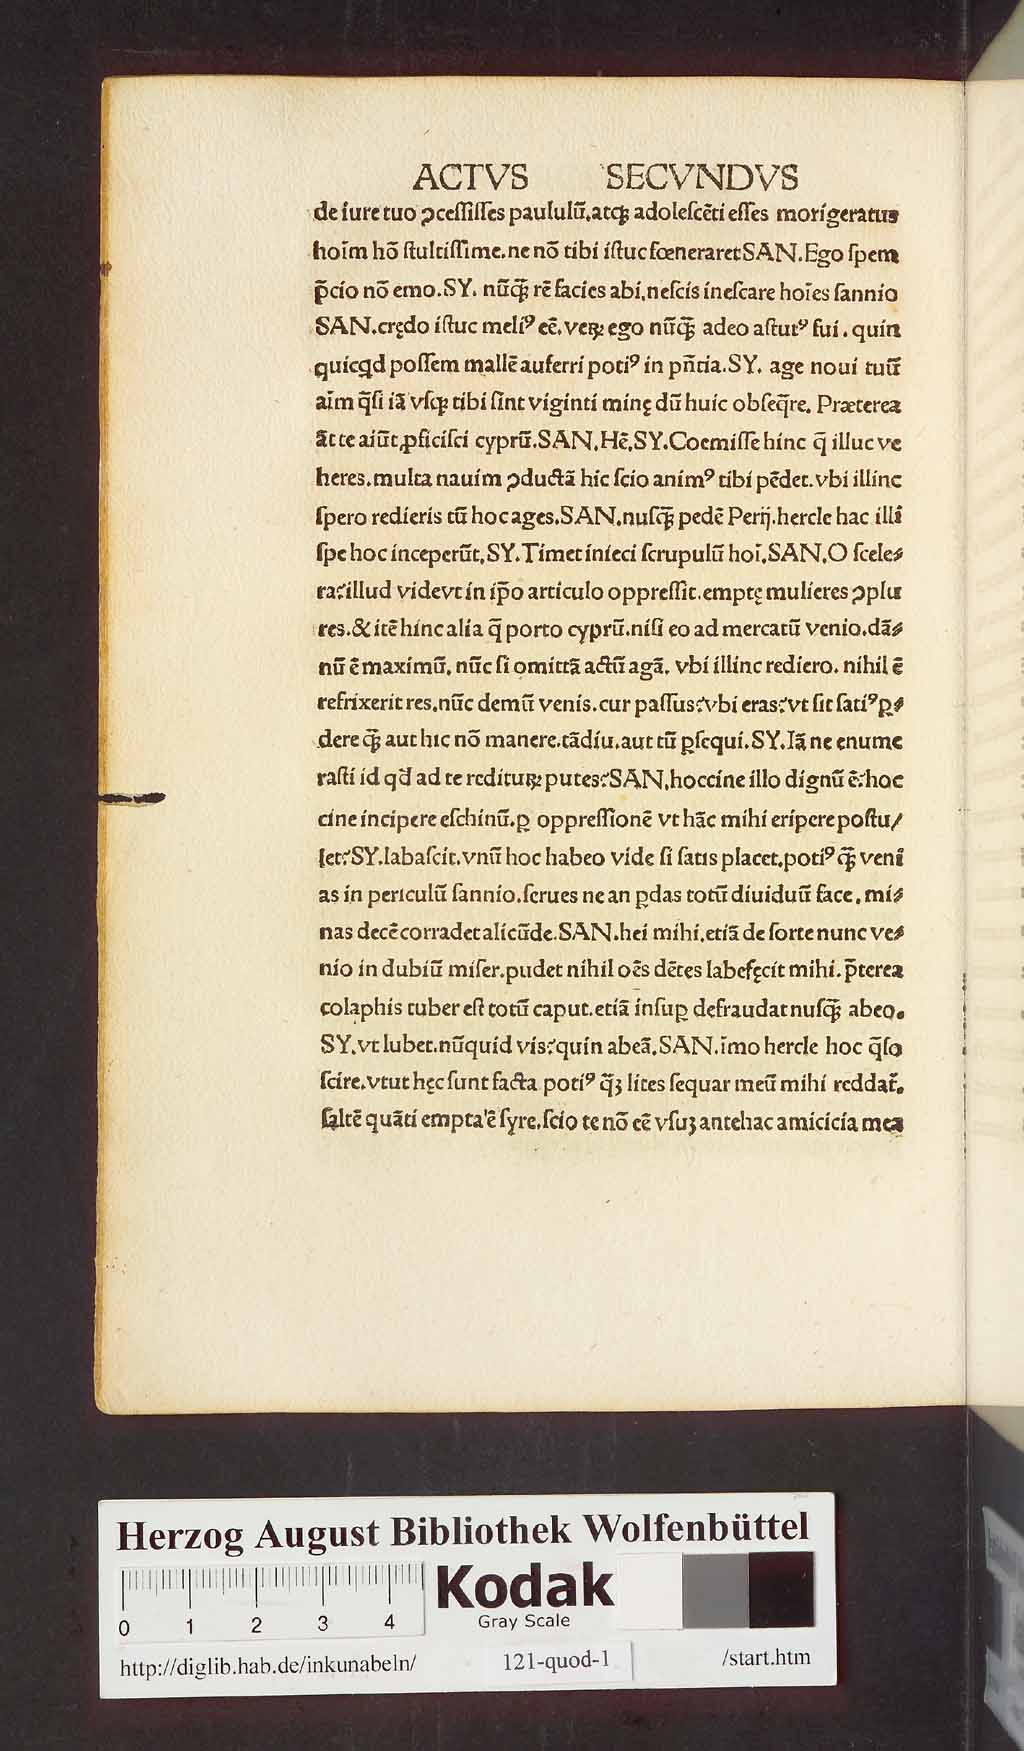 ACTVS SECVNDVS
de iure tuo ꝯceſſiſſes paululū.atqꝫ adoleſcēti eſſes morigeratus
hoīm hō ſtultiſſime.ne nō tibi iſtuc fœneraret SAN.Ego ſpem
p̄cio nō emo.SY. nūqꝫ̄ rē facies abi.neſcis ineſcare hoīes ſannio
SAN.crędo iſtuc meliꝰ eē.veꝝ ego nūqꝫ̄ adeo aſtutꝰ fui.quin
quicqd poſſem mallē auferri potiꝰ in pn̄tia.SY. age noui tuū
aīm q̄ſi iā vſqꝫ tibi ſint viginti minę dū huic obſeq̄re. Præterea
āt te aiūt ꝓficiſci cyprū.SAN.Hē.SY.Coemiſſe hinc q̄ illuc ve
heres.multa nauim ꝯductā hic ſcio animꝰ tibi pēdet.vbi illinc
ſpero redieris tū hoc ages.SAN.nuſqꝫ̄ pedē Perij.hercle hac illī
ſpe hoc inceperūt.SY.Timet inieci ſcrupulū hoī.SAN.O ſcele⸗
ra?illud vide vt in ip̄o articulo oppreſſit.emptę mulieres ꝯplu
res.& itē hinc alia q̄ porto cyprū.niſi eo ad mercatū venio.dā⸗
nū ē maximū. nūc ſi omittā actū agā. vbi illinc rediero. nihil ē
refrixerit res.nūc demū venis.cur paſſus?vbi eras?vt ſit ſatiꝰ ꝑ⸗
dere qꝫ̄ aut hic nō manere.tādiu.aut tū ꝑſequi.SY.Iā ne enume
raſti id qd̄ ad te redituꝝ putes?SAN.hoccine illo dignū ē?hoc
cine incipere eſchinū.ꝑ oppreſſionē vt hāc mihi eripere poſtu/
let?SY.labaſcit.vnū hoc habeo vide ſi ſatis placet.potiꝰ qꝫ̄ venī
as in periculū ſannio.ſerues ne an ꝑdas totū diuiduū face.mi⸗
nas decē corradet alicūde.SAN.hei mihi.etiā de ſorte nunc ve⸗
nio in dubiū miſer.pudet nihil oēs dētes labefęcit mihi.p̄terea
colaphis tuber eſt totū caput.etiā inſuꝑ defraudat nuſqꝫ̄ abeo.
SY.vt lubet.nūquid vis?quin abeā.SAN.īmo hercle hoc q̄ſo
ſcire.vtut hęc ſunt facta potiꝰ q̄ꝫ lites ſequar meū mihi reddat̄.
ſaltē quāti empta'ē ſyre.ſcio te nō eē vſuꝫ antehac amicicia mea
Herzog August Bibliothek Wolfenbüttel
0 1 2 3 4
Kodak
Gray Scale
http://diglib.hab.de/inkunabeln/ 121-quod-1 /start.htm